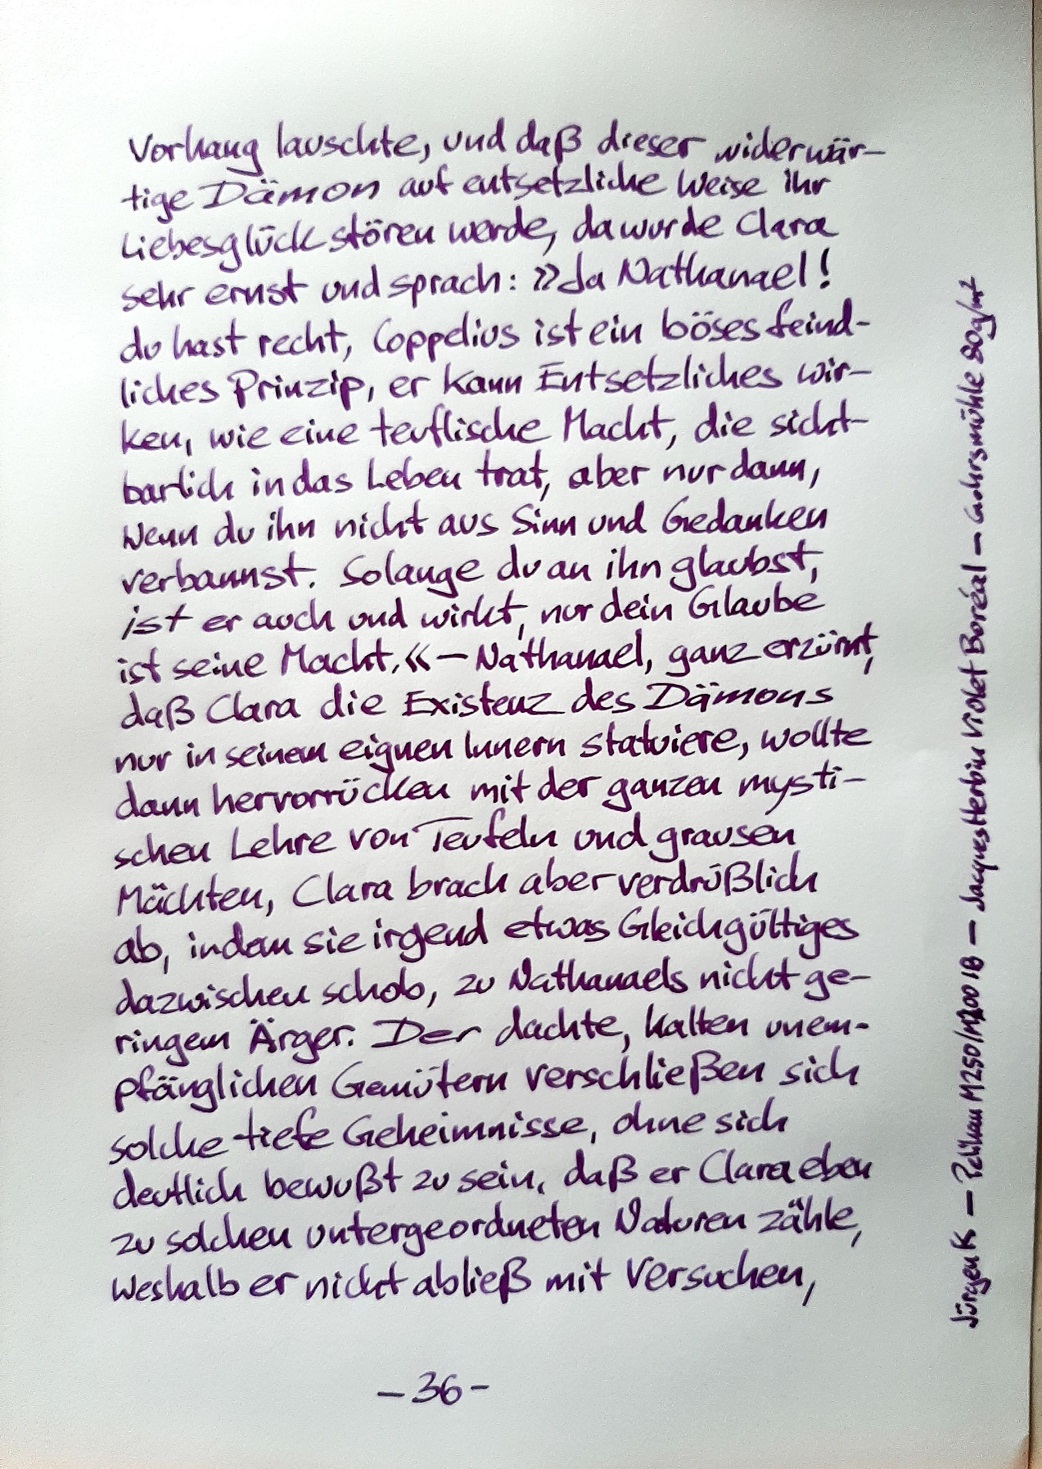 Vorhang lauschte, und daß dieser widerwär-
tige Dämon auf entsetzliche Weise ihr
Liebesglück stören werde, da wurde Clara
sehr ernst und sprach: »Ja Nathanael!
du hast recht, Coppelius ist ein böses feind-
liches Prinzip, er kann Entsetzliches wir-
ken, wie eine teuflische Macht, die sicht-
barlich in das Leben trat, aber nur dann,
wenn du ihn nicht aus Sinn und Gedanken
verbannst. Solange du an ihn glaubst,
ist er auch und wirkt, nur dein Glaube
ist seine Macht.« – Nathanael, ganz erzürnt,
daß Clara die Existenz des Dämons
nur in seinem eignen Innern statuiere, wollte
dann hervorrücken mit der ganzen mysti-
schen Lehre von Teufeln und grausen
Mächten, Clara brach aber verdrüßlich
ab, indem sie irgend etwas Gleichgültiges
dazwischen schob, zu Nathanaels nicht ge-
ringem Ärger. Der dachte, kalten unem-
pfänglichen Gemütern verschließen sich
solche tiefe Geheimnisse, ohne sich
deutlich bewußt zu sein, daß er Clara eben
zu solchen untergeordneten Naturen zähle,
weshalb er nicht abließ mit Versuchen,
– 36 –
Jürgen K – Pelikan M250/M200 IB – Jacques Herbin Violet Boréal – Gohrsmühle 80g/m²